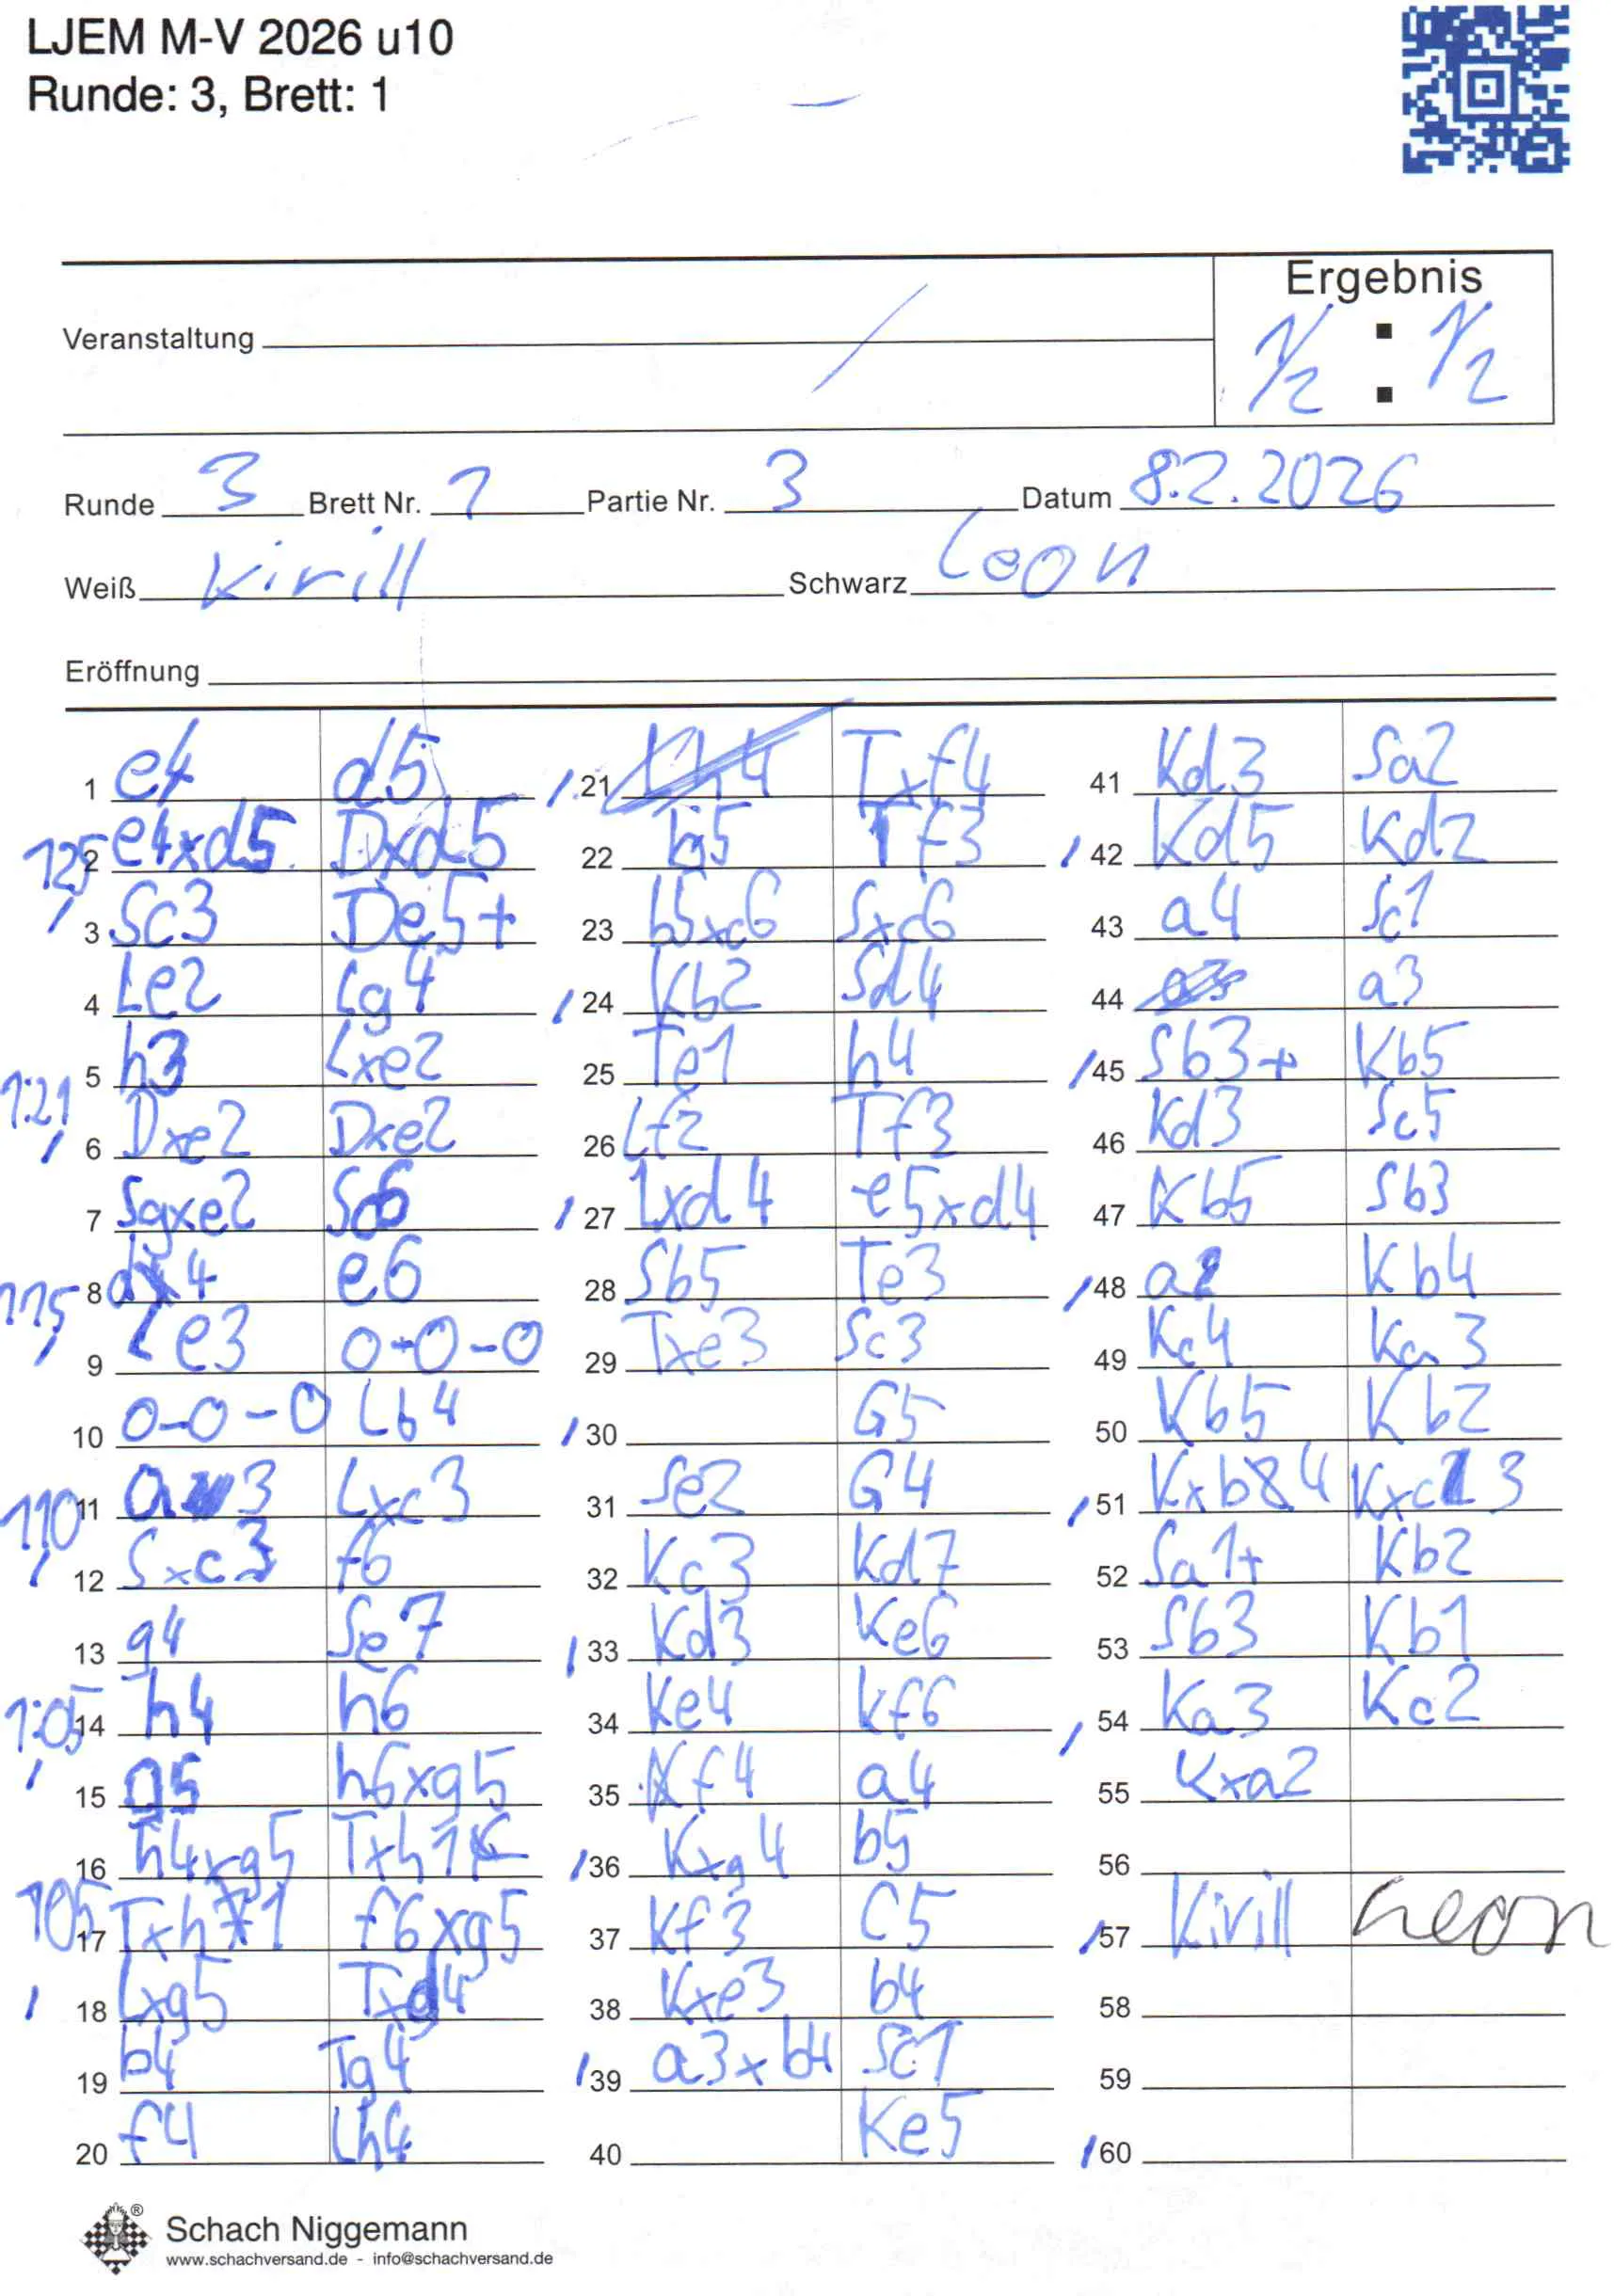 LJEM M-V 2026 u10
Runde: 3, Brett: 1
Ergebnis
Veranstaltung
1/2 : 1/2
Runde 3 Brett Nr. 1 Partie Nr. 3 Datum 8.2.2026
Weiß Kirill Schwarz Leon
Eröffnung
1 e4 d5
125 2 e4xd5 Dxd5
3 Sc3 De5+
4 Le2 Lg4
5 h3 Lxe2
1:21 6 Dxe2 Dxe2
7 Sgxe2 Sc6
8 d4 e6
115 9 Le3 0-0-0
10 0-0-0 Lb4
110 11 a3 Lxc3
12 Sxc3 f6
13 g4 Se7
1:05 14 h4 h6
15 g5 h6xg5
16 h4xg5 Txh1
105 17 Txh1 f6xg5
18 Lxg5 Txd4
19 b4 Tg4
20 f4 Lh4
21 Lh4 Txf4
22 b5 Tf3
23 b5xc6 Sxc6
24 Kb2 Sd4
25 Te1 h4
26 Lf2 Tf3
27 Lxd4 e5xd4
28 Sb5 Te3
29 Txe3 Sc3
30 G5
31 Se2 G4
32 Kc3 Kd7
33 Kd3 Ke6
34 Ke4 Kf6
35 Kf4 a4
36 Kxg4 b5
37 Kf3 C5
38 Kxe3 b4
39 a3xb4 Sc1
40 Ke5
41 Kd3 Sa2
42 Kd5 Kd2
43 a4 Sc1
44 a3
45 Sb3+ Kb5
46 Kd3 Sc5
47 Kb5 Sb3
48 a2 Kb4
49 Kc4 Ka3
50 Kb5 Kb2
51 Kxb4 Kxc3
52 Sa1+ Kb2
53 Sb3 Kb1
54 Ka3 Kc2
55 Kxa2
56
57 Kirill Leon
58
59
60
Schach Niggemann
www.schachversand.de - info@schachversand.de